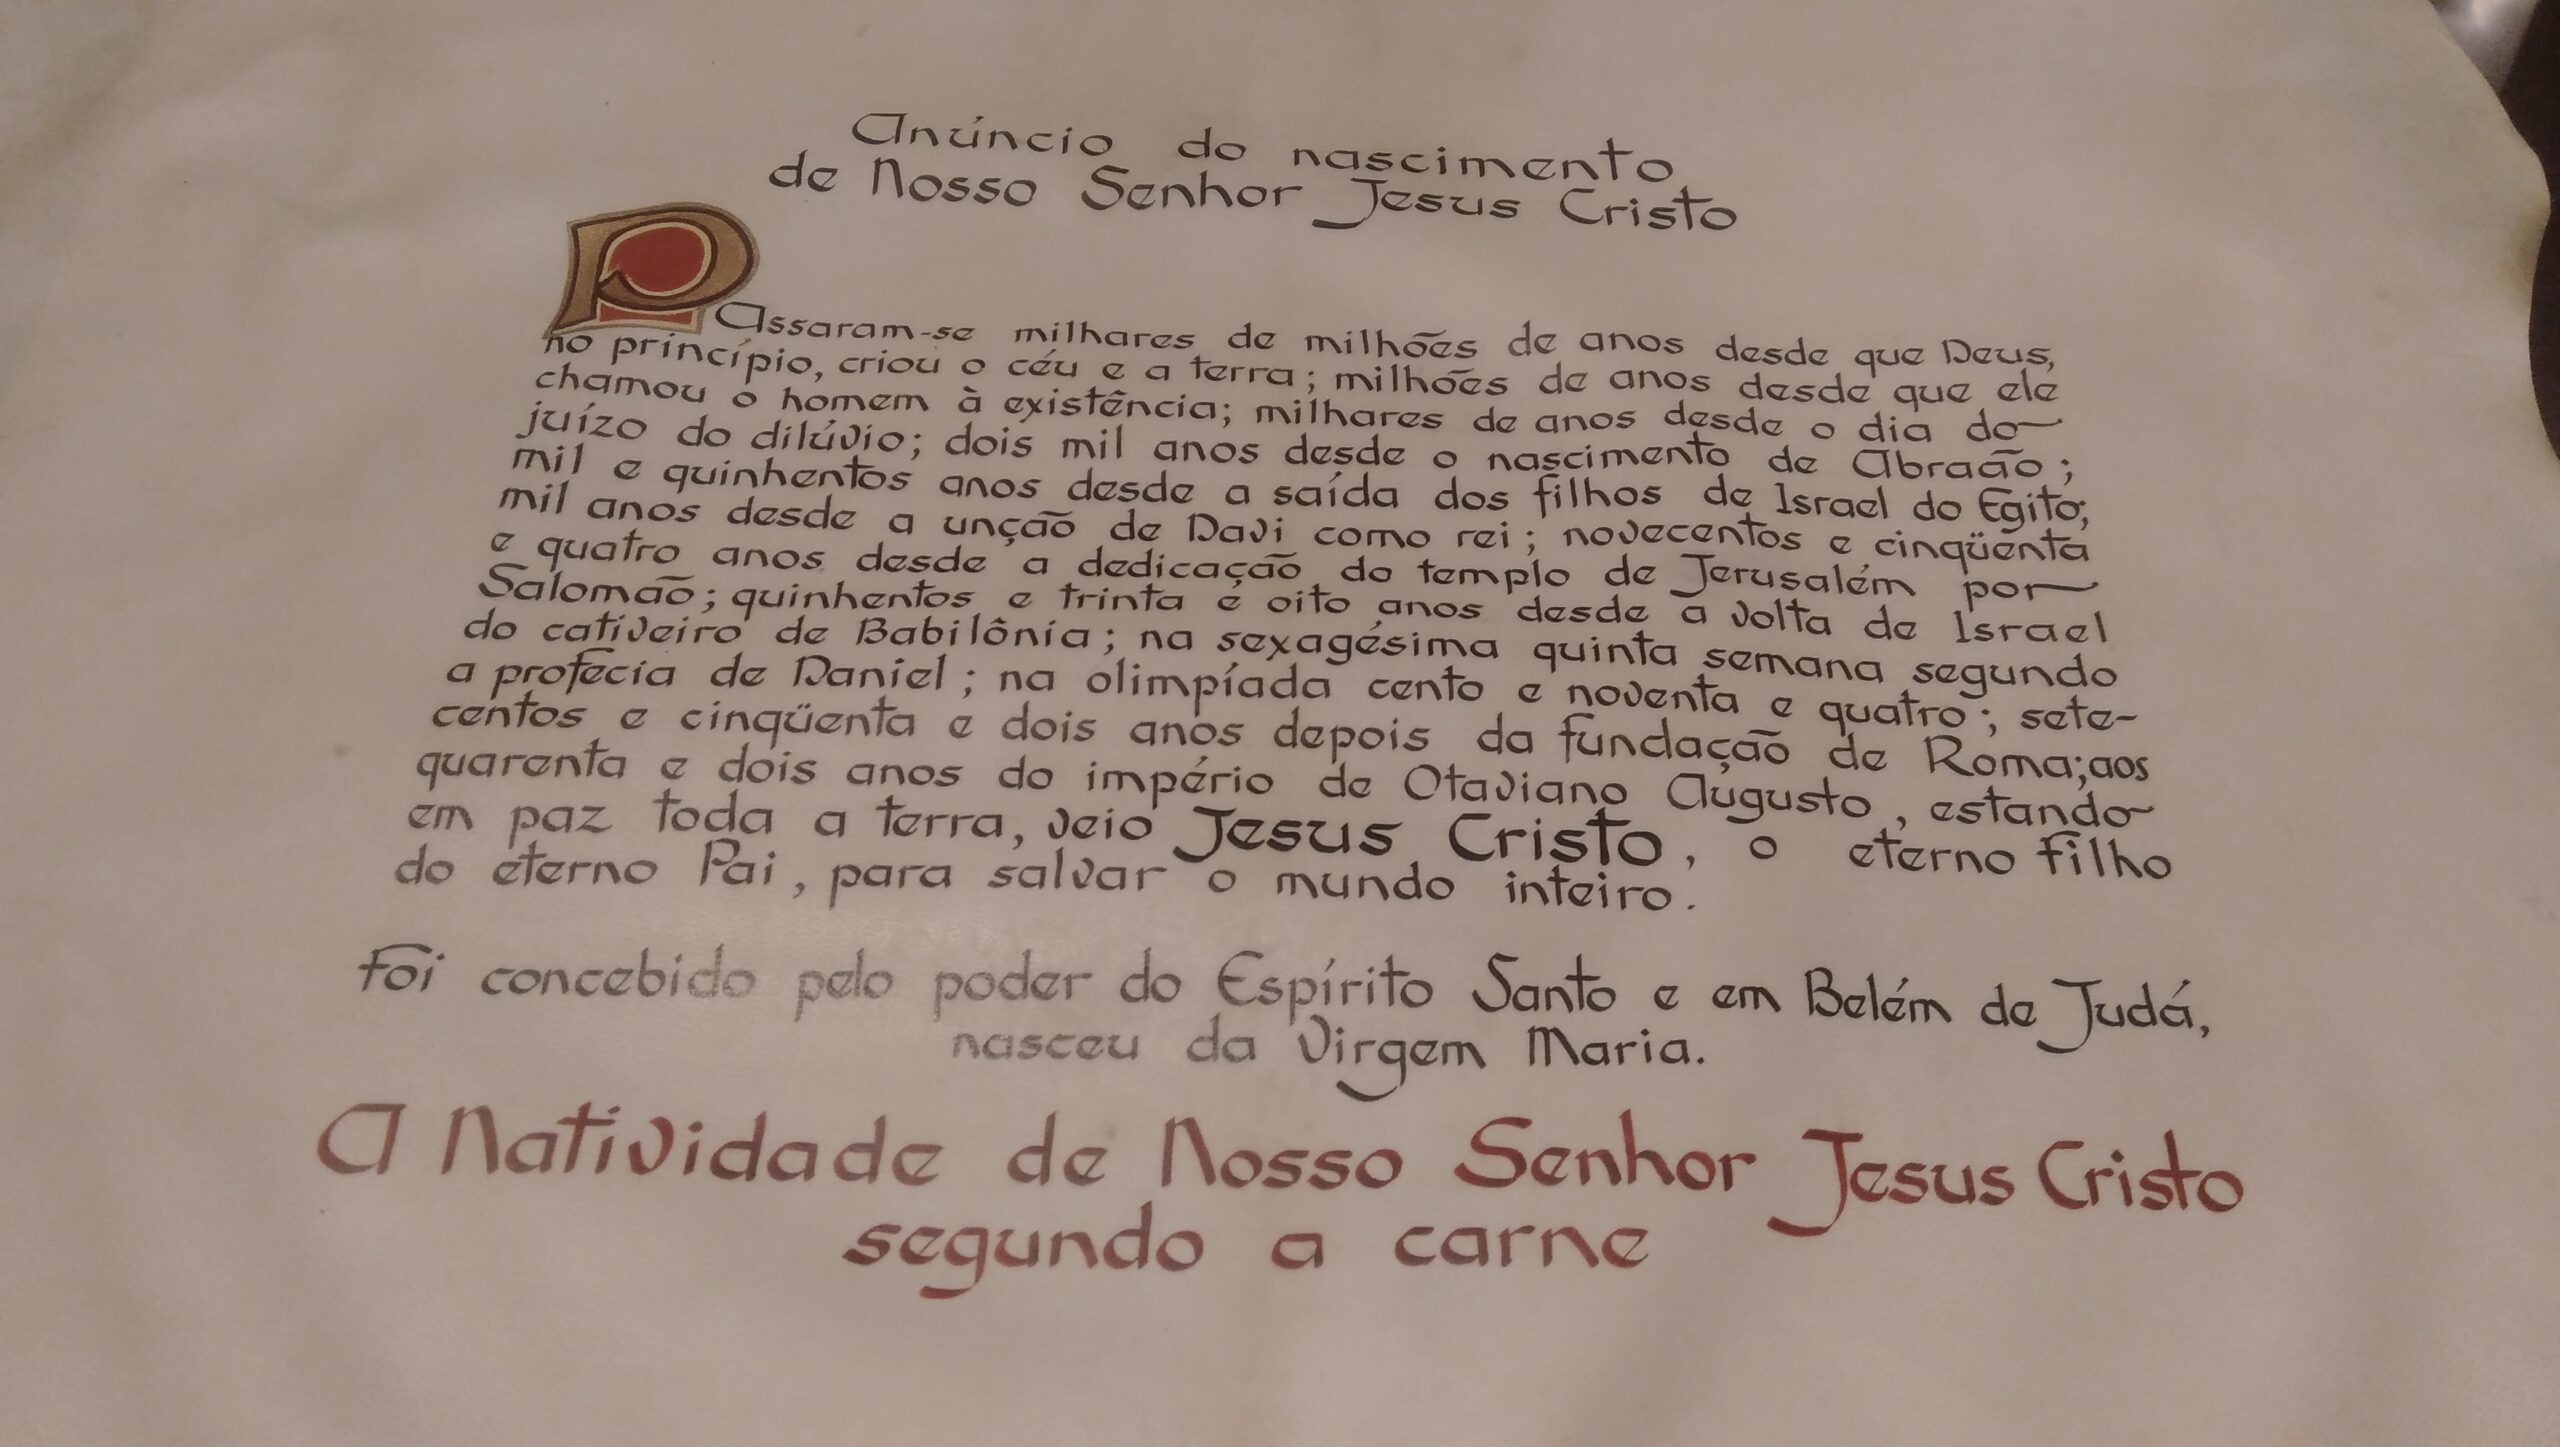 Anúncio do nascimento
de Nosso Senhor Jesus Cristo
PAssaram-se milhares de milhões de anos desde que Deus,
no princípio, criou o céu e a terra; milhões de anos desde que ele
chamou o homem à existência; milhares de anos desde o dia do
juízo do dilúvio; dois mil anos desde o nascimento de Abraão;
mil e quinhentos anos desde a saída dos filhos de Israel do Egito;
mil anos desde a unção de Davi como rei; novecentos e cinqüenta
e quatro anos desde a dedicação do templo de Jerusalém por
Salomão; quinhentos e trinta e oito anos desde a volta de Israel
do cativeiro de Babilônia; na sexagésima quinta semana segundo
a profecia de Daniel; na olimpíada cento e noventa e quatro; sete-
centos e cinqüenta e dois anos depois da fundação de Roma; aos
quarenta e dois anos do império de Otaviano Augusto, estando
em paz toda a terra, veio Jesus Cristo, o eterno filho
do eterno Pai, para salvar o mundo inteiro.
Foi concebido pelo poder do Espírito Santo e em Belém de Judá,
nasceu da Virgem Maria.
A Natividade de Nosso Senhor Jesus Cristo
segundo a carne